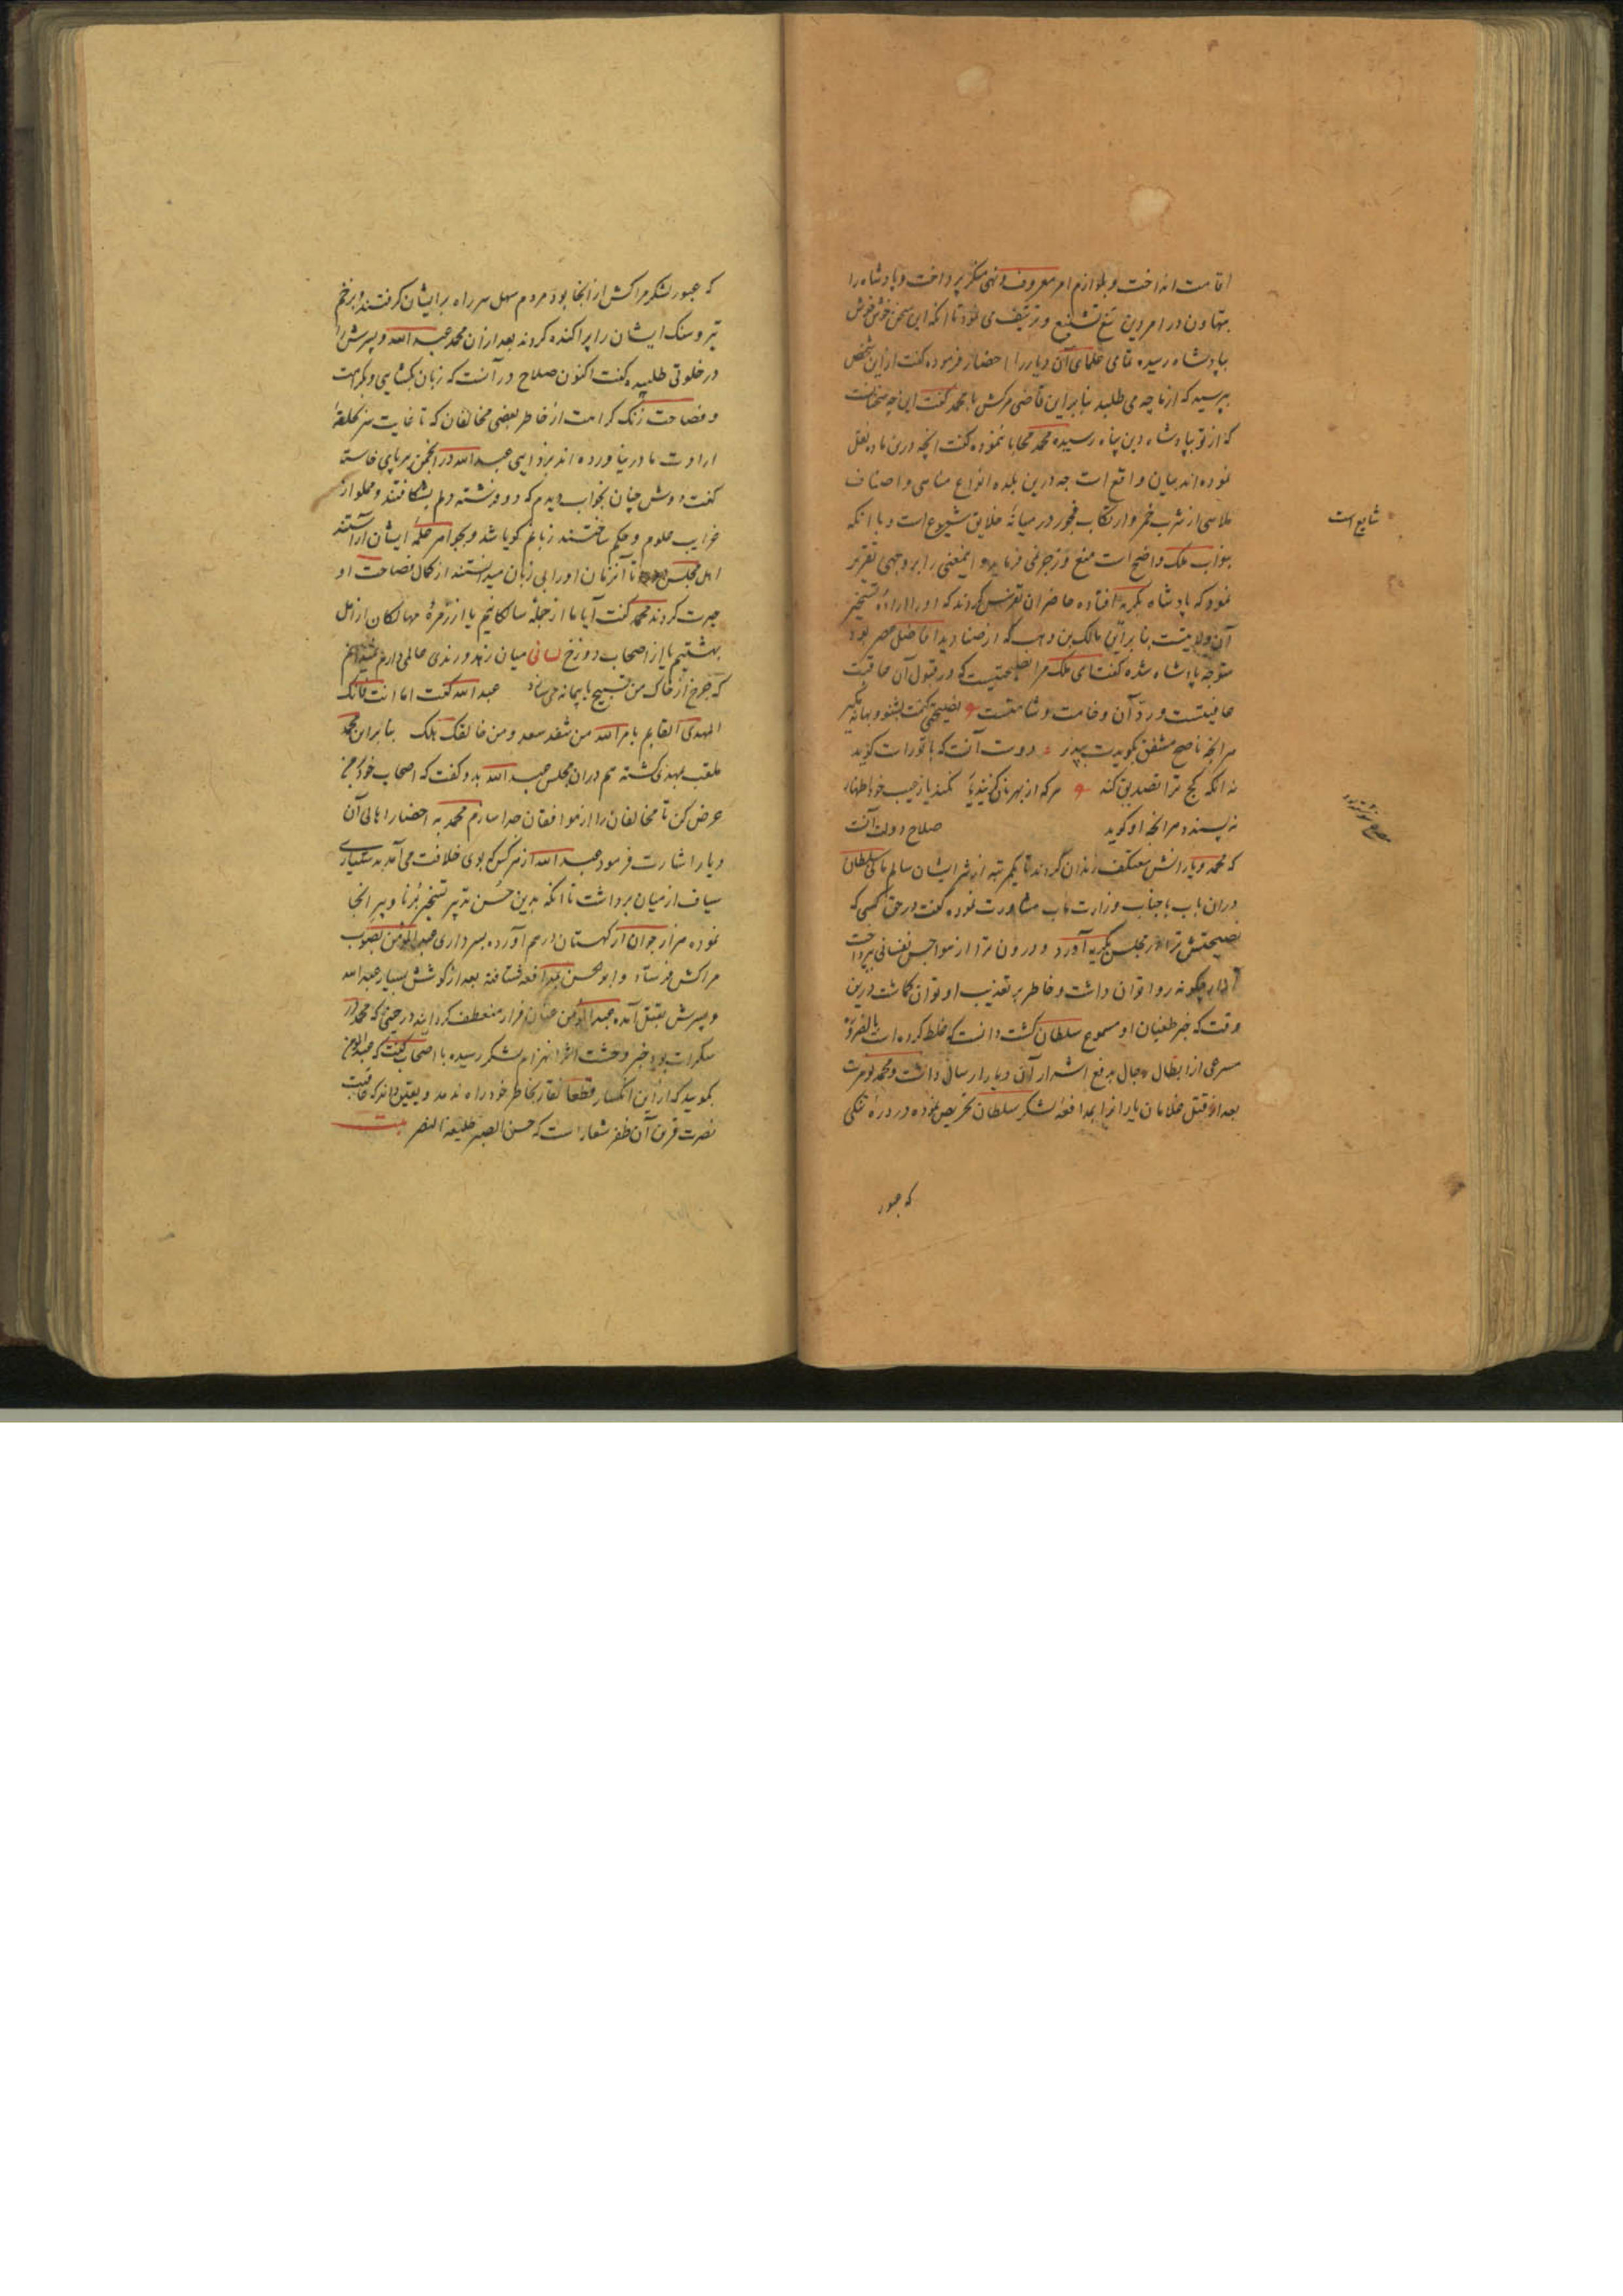 اقامت انداخت و بلوازم امر معروف و نهی منکر پرداخت و پادشاه را
بتهاون در امر دین تشنیع و می نمود تا آنکه این سخن خوش خوش
بپادشاه رسیده تمامی علمای آن دیار را احضار فرموده گفت از این شخص
بپرسید که از ما چه می طلبد بنا براین قاضی مرکش با محمد گفت این چه سخنانست
که از تو بپادشاه دین پناه رسیده محمد محابا ننموده گفت آنچه درین ماده نقل
نموده اند بیان واقع است چه درین بلده انواع مناهی و اصناف
ملاهی از شرب خمر و ارتکاب فجور در میانه خلایق شیوع است و با آنکه
بنواب ملک واضح است منع و زجر نمی فرماید و اینمعنی را بر وجهی تقریر
نمود که پادشاه بگریه افتاده حاضران تفرس کردند که او را اراده تسخیر
آن ولایتست بنا براین مالک بن وهب که از صنادید افاضل عصر بود
متوجه پادشاه شده گفت ای ملک مرا نصیحتیست که در قبول آن عاقبت
عافیتست و رد آن وخامت و شامتست نصیحتی کنمت بشنو و بهانه مگیر
هر آنچه ناصح مشفق بگویدت بپذیر دوست آنست که با تو راست گوید
نه آنکه کج ترا تصدیق کند هر که از بهر
نه پسندد هر آنچه او گوید صلاح دولت آنست
که محمد و یارانش معتکف زندان گردند تا یکمرتبه از شر ایشان سالم مانی سلطان
دران باب با جناب وزارت مآب مشاورت نموده گفت در حق کسی که
نصیحتش ترا در مجلس بگریه آورد و درون ترا از هواجس نفسانی پرداخت
ایذا چگونه روا توان داشت و خاطر بر تعذیب او توان گماشت درین
وقت که خبر طغیان او مسموع سلطان گشت دانست که غلط کرده است بالضروره
سرعی از ابطال رجال بدفع اشرار آن دیار ارسال داشت و محمد تومرت
بعد از قتل غلامان یارانرا بمدافعه لشکر سلطان تحریص نموده در دره تنگی
که عبور
شایع است
که عبور لشکر مراکش از آنجا بود مردم سهل سر راه بر ایشان گرفتند و بزخم
تیر و سنگ ایشان را پراکنده کردند بعد ازان محمد عبد الله و پسرش را
در خلوتی طلبیده گفت اکنون صلاح در آنست که زبان بگشایی و بکرامت
و فصاحت زنگ کرامت از خاطر بعضی مخالفان که تا غایت سر بحلقه
ارادت ما در نیاورده اند بزدایی عبد الله در انجمن بر پای خاست
گفت دوش چنان بخواب دیدم که دو فرشته دلم بشکافتند و مملو از
غرایب علوم و حکم ساختند زبانم گویا شد و بجواهر ایشان آراستند
اهل مجلس تا آنزمان او را بی زبان میدانستند از کمال فصاحت او
حیرت کردند محمد گفت آیا ما از جمله سالکانیم یا از زمره هالکان از اهل
بهشتیم یا از اصحاب دوزخ لسانی میان زهد و رندی عالمی دارم نمیدانم
که چرخ از خاک من تسبیح یا پیمانه میسازد عبد الله گفت اما انت فانک
المهدی القایم بامر الله من سعد و من خالفک هلک بنا براین محمد
ملقب بمهدی گشته هم دران مجلس عبد الله بدو گفت که اصحاب خود بمن
عرض کن تا مخالفان را از موافقان جدا سازم محمد به احضار اهالی آن
دیار اشارت فرمود عبد الله از هر کس که بوی خلافت می آمد بدستیاری
سیاف از میان برداشت تا آنکه بدین حسن تدبیر تسخیر برنا و پیر آنجا
نموده هزار جوان از کهستان درهم آورده بسرداری عبد المؤمن بصوب
مراکش فرستاد و ابو الحسن بمدافعه شتافته بعد از کوشش بسیار عبد الله
و پسرش بقتل آمده عبد المؤمن عنان فرار منعطف گردانید در حینی که محمد در
سکرات بود خبر وحشت اثر انهزام لشکر رسیده با اصحاب گفت که عبد المؤمن
بگویید که از این انکسار قطعا نقار بخاطر خود راه ندهد و یقین داند که عاقبت
نصرت قرین آن ظفر شعار است که حسن الصبر طلیعه النصر بیت